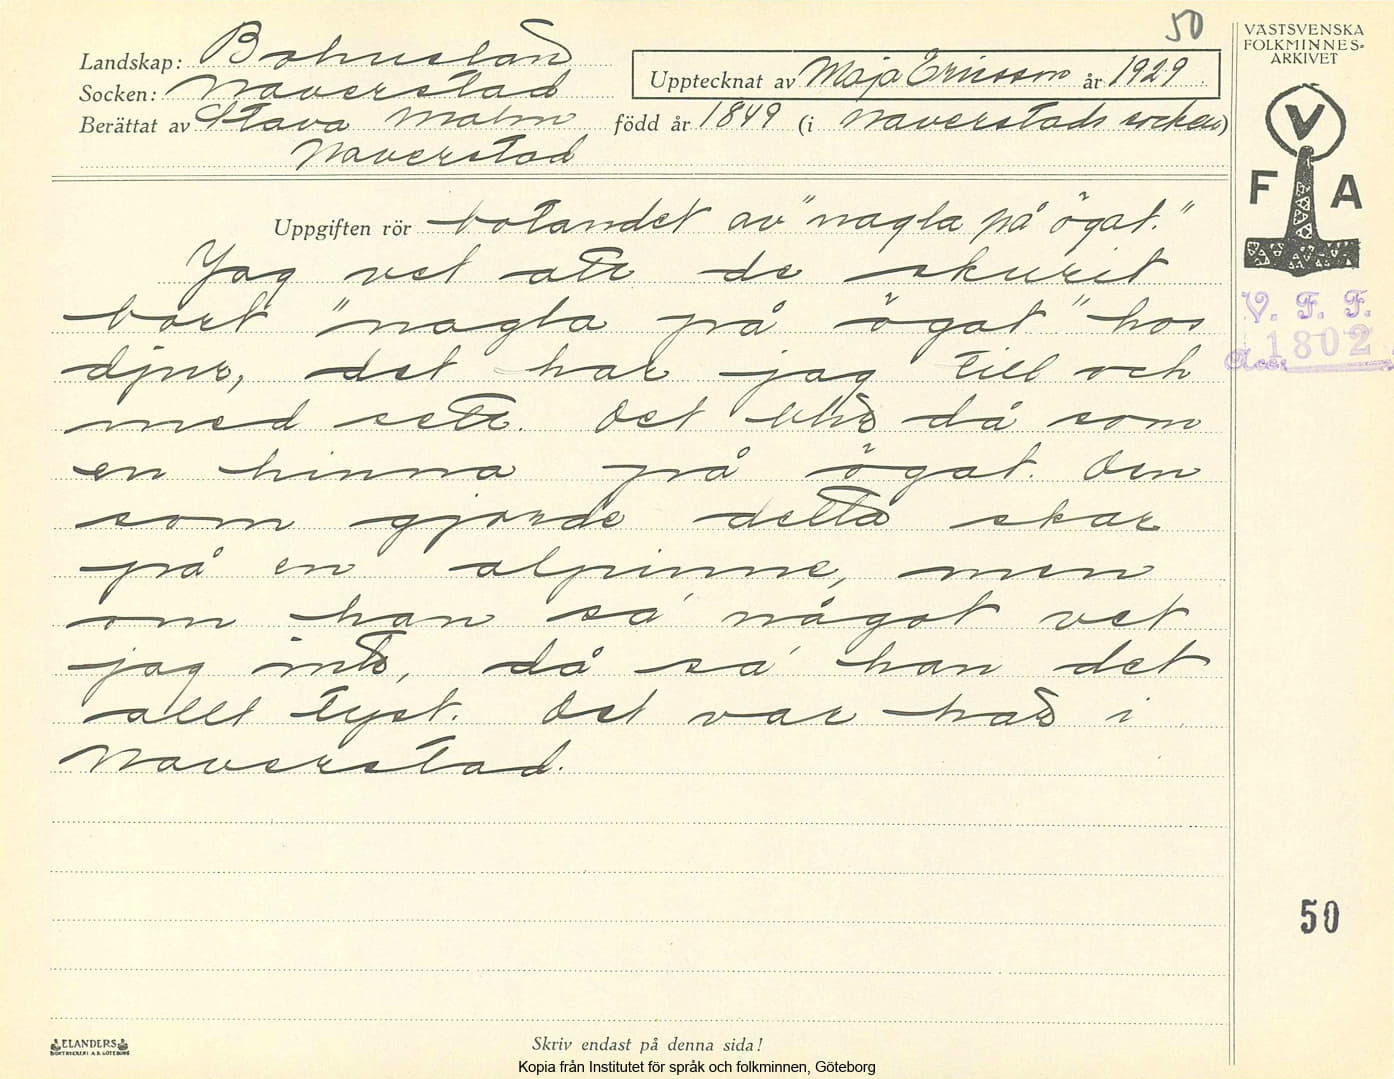 50
Landskap: Bohuslän
Socken: Naverstad
Upptecknat av Maja Ericsson år 1929
Berättat av Stava Malm född år 1849 (i Naverstads socken)
Naverstad
VÄSTSVENSKA
FOLKMINNES-
ARKIVET
V
F A
V. F. F.
Acc. 1802
Uppgiften rör botandet av "nagla på ögat."
Jag vet att de skurit
bort "nagla på ögat" hos
djur, det har jag till och
med sett. Det blir då som
en hinna på ögat. Den
som gjorde detta skar
på en alpinne, men
om han sa' något vet
jag inte, då sa' han det
allt tyst. Det var här i
Naverstad.
50
ELANDERS
BOKTRYCKERI A.B. GÖTEBORG
Skriv endast på denna sida!
Kopia från Institutet för språk och folkminnen, Göteborg